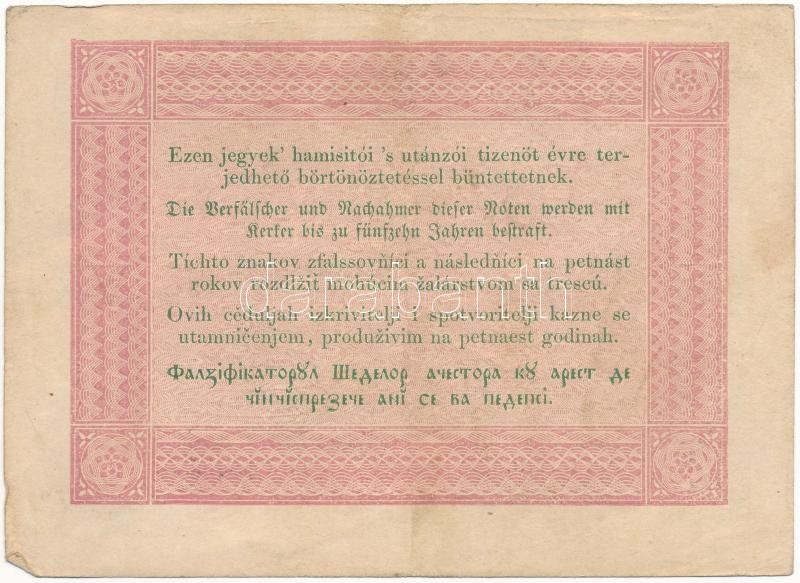 Ezen jegyek' hamisitói 's utánzói tizenöt évre ter-
jedhető börtönöztetéssel büntettetnek.
Die Verfälscher und Nachahmer dieser Noten werden mit
Kerker bis zu fünfzehn Jahren bestraft.
Tíchto znakov zfalssovňíci a následňíci na petnást
rokov rozdlžiť mohúcim žalárstvom sa trescú.
darabanth
Ovih céduljah izkrivitelji i spotvoritelji kazne se
utamničenjem, produživim na petnaest godinah.
Фалꙃіфікаторꙋл Шеделор ачестора кꙋ арест де
чінчіспреꙁече ані се ва педепсі.